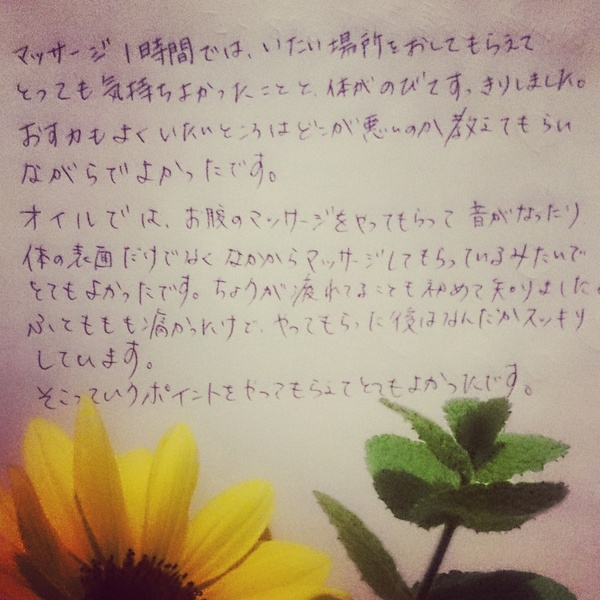 マッサージ1時間では、いたい場所をおしてもらえて
とっても気持ちよかったことと、体がのびてすっきりしました。
おす力もよくいたいところはどこが悪いのか教えてもらい
ながらでよかったです。
オイルでは、お腹のマッサージをやってもらって音がなったり
体の表面だけでなくなかからマッサージしてもらっているみたいで
とてもよかったです。ちょうが疲れてることも初めて知りました。
ふとももも痛かったけど、やってもらった後はなんだかスッキリ
しています。
そこっていうポイントをやってもらえてとてもよかったです。